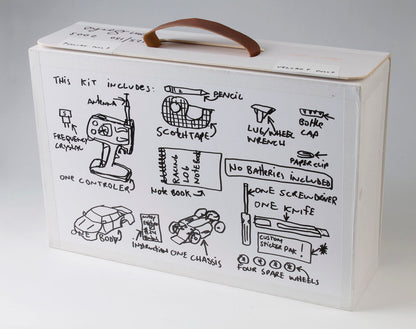 THIS KIT INCLUDES:
PENCIL
ANTENNA
FREQUENCY
CRYSTAL
SCOTCH TAPE
LUG/WHEEL
WRENCH
BOTTLE
CAP
PAPER CLIP
ONE CONTROLER
RACING
LOG
NOTE BOOK
NOTE BOOK
NO BATTERIES INCLUDED
ONE SCREWDRIVER
ONE KNIFE
ONE BODY
INSTRUCTION
ONE CHASSIS
CUSTOM
STICKER PAK !
FOUR SPARE WHEELS